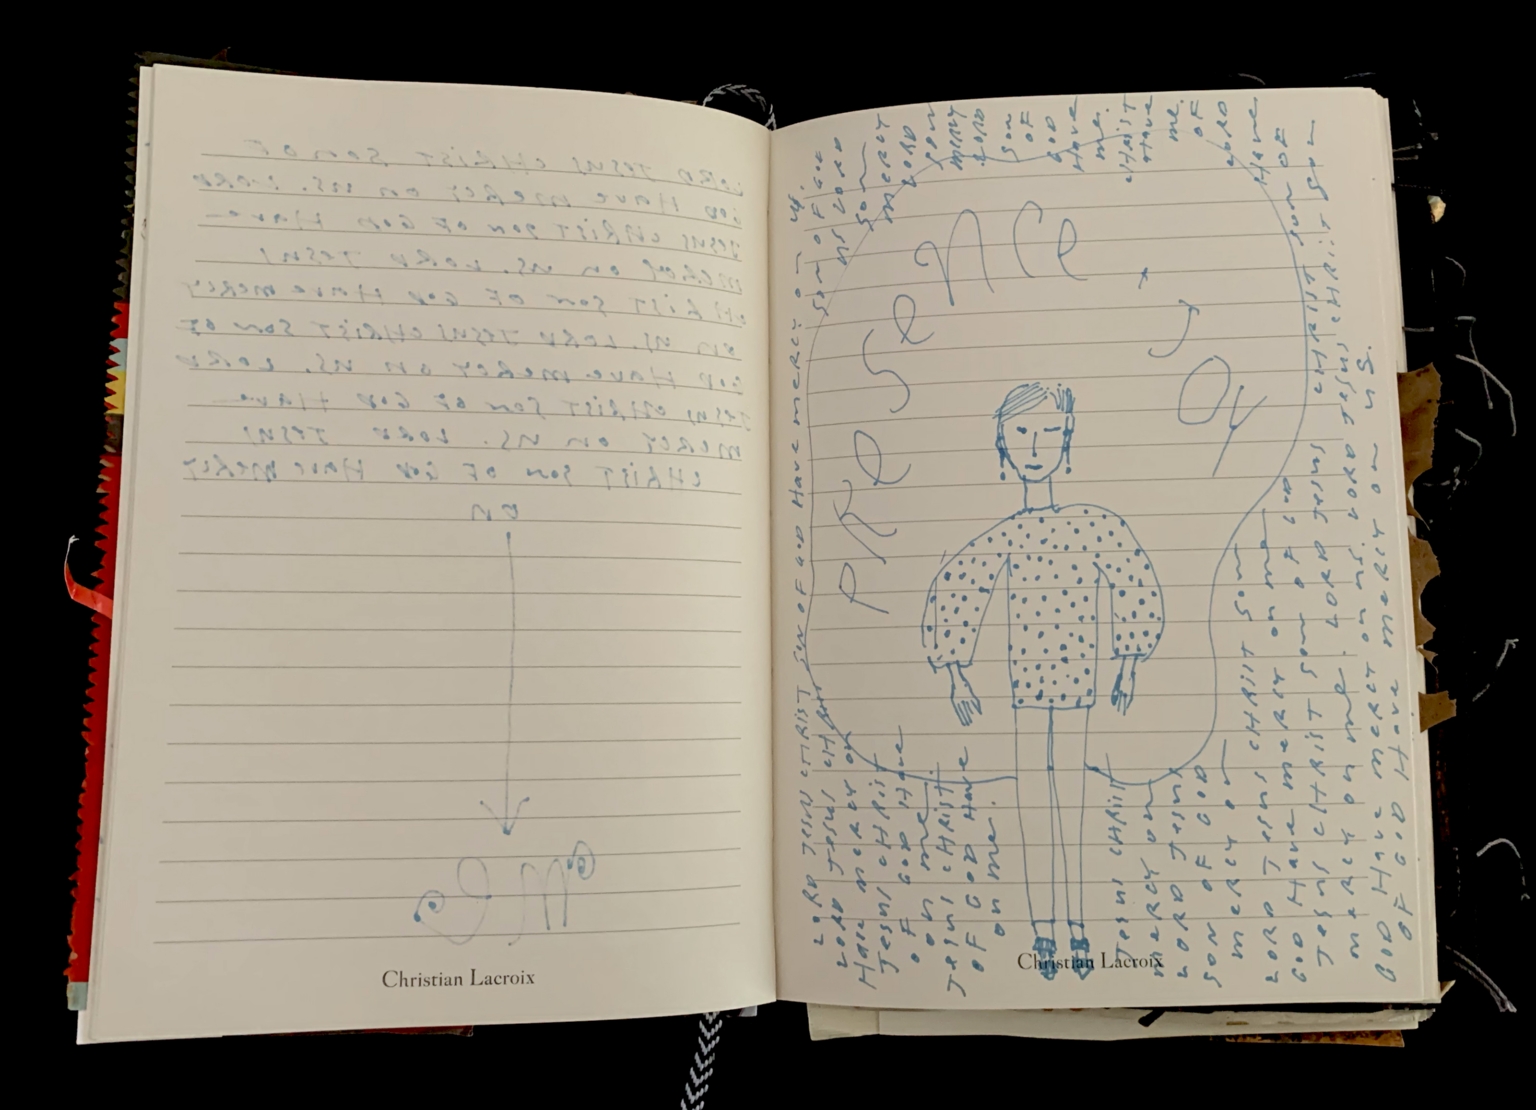 LORD JESUS CHRIST SON OF
GOD HAVE MERCY ON US. LORD
JESUS CHRIST SON OF GOD HAVE
MERCY ON US. LORD JESUS
CHRIST SON OF GOD HAVE MERCY
ON US. LORD JESUS CHRIST SON OF
GOD HAVE MERCY ON US. LORD
JESUS CHRIST SON OF GOD HAVE
MERCY ON US. LORD JESUS
CHRIST SON OF GOD HAVE MERCY
ON
Me
Christian Lacroix
PReSeNCe, JOy
LORD JESUS CHRIST SON OF GOD Have mercy on us.
LORD JESUS CHRIST SON OF GOD
Have mercy on US LORD
JESUS CHRIST SON
OF GOD Have MERCY
on me LORD
JESUS CHRIST SON
OF GOD Have MERCY
on me. LORD
SON
OF
GOD
Have
me.
JESUS CHRIST CHRIST
mercy on Have
LORD JESUS me.
SON OF GOD OF
mercy on LORD
LORD JESUS CHRIST SON Have
GOD Have mercy on me SON OF
JESUS CHRIST SON OF GOD CHRIST
mercy on me. LORD JESUS CHRIST SON
GOD Have mercy on us. LORD JESUS
OF GOD Have mercy on us.
Christian Lacroix